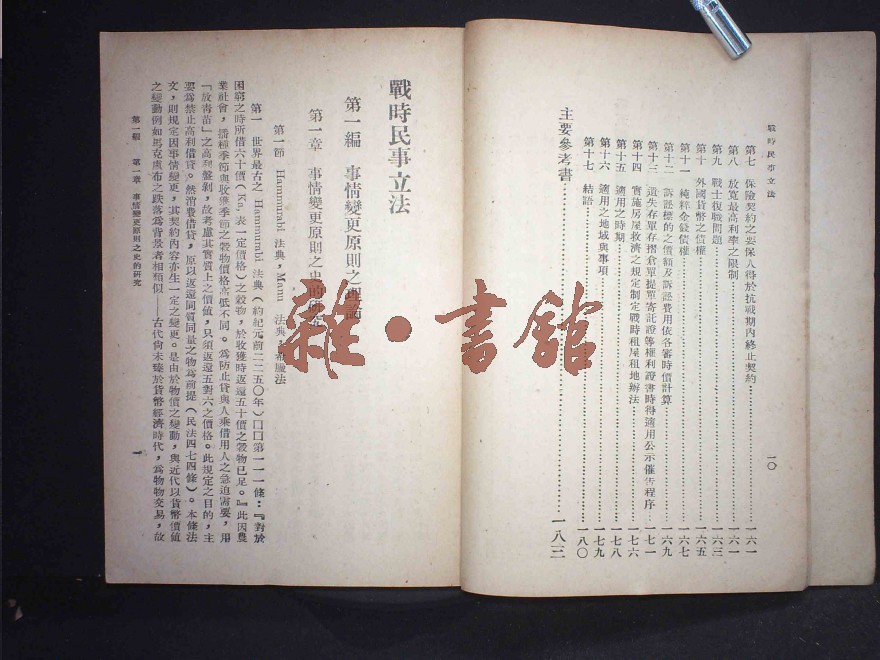 戰時民事立法
一〇
第七　保險契約之要保人得於抗戰期內終止契約…………一六一
第八　放寬最高利率之限制…………一六一
第九　戰士復職問題…………一六三
第十　外國貨幣之債權…………一六五
第十一　純粹金錢債權…………一六七
第十二　訴訟標的之價額及訴訟費用依各審時價計算…………一六九
第十三　遺失存單存摺倉單提單寄託證等權利證書時得適用公示催告程序…………一七一
第十四　實施房屋救濟之規定制定戰時租屋租地辦法…………一七六
第十五　適用之時期…………一七八
第十六　適用之地域與事項…………一七九
第十七　結語…………一八〇
主要參考書…………一八三
戰時民事立法
第一編　事情變更原則之理論
第一章　事情變更原則之史的研究
第一節　Hammurabi 法典，Manu 法典，希臘法
第一　世界最古之 Hammurabi 法典（約紀元前二二五〇年）囗囗第一一一條：『對於
困窮之時所借六十價（Ka，表一定價格）之穀物，於收獲時返還五十價之穀物已足。』此因農
業社會，播種季節與收獲季節之穀物價格高低不同。為防止貸與人乘借用人之急迫需要，用
「放青苗」之高利盤剝，故考慮其實質上之價値，只須返還五對六之價格。此規定之目的，主
要為禁止高利借貸。然消費借貸，原以返還同質同量之物為前提（民法四七四條）。本條法
文，則規定因事情變更，其契約內容亦生一定之變更。是由於物價之變動，與近代以貨幣價値
之變動例如馬克盧布之跌落為背景者相類似——古代尙未臻於貨幣經濟時代，為物物交易，故
第一編　第一章　事情變更原則之史的研究
一
雜·書館